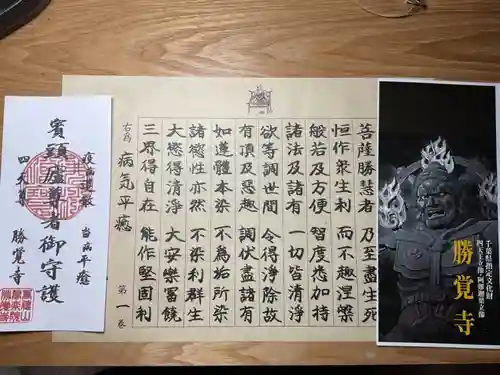 千葉県指定文化財
勝覚寺
菩薩勝慧者 乃至盡生死
恒作衆生利 而不趣涅槃
般若及方便 智度悉加持
諸法及諸有 一切皆清淨
欲等調世間 令得淨除故
有頂及惡趣 調伏盡諸有
如蓮體本染 不為垢所染
諸慾性亦然 不染利群生
大慾得清淨 大安樂富饒
三界得自在 能作堅固利
右為 病気平癒 第一巻
疫病退散 当病平癒
賓頭盧尊者御守護
四天尊 勝覚寺